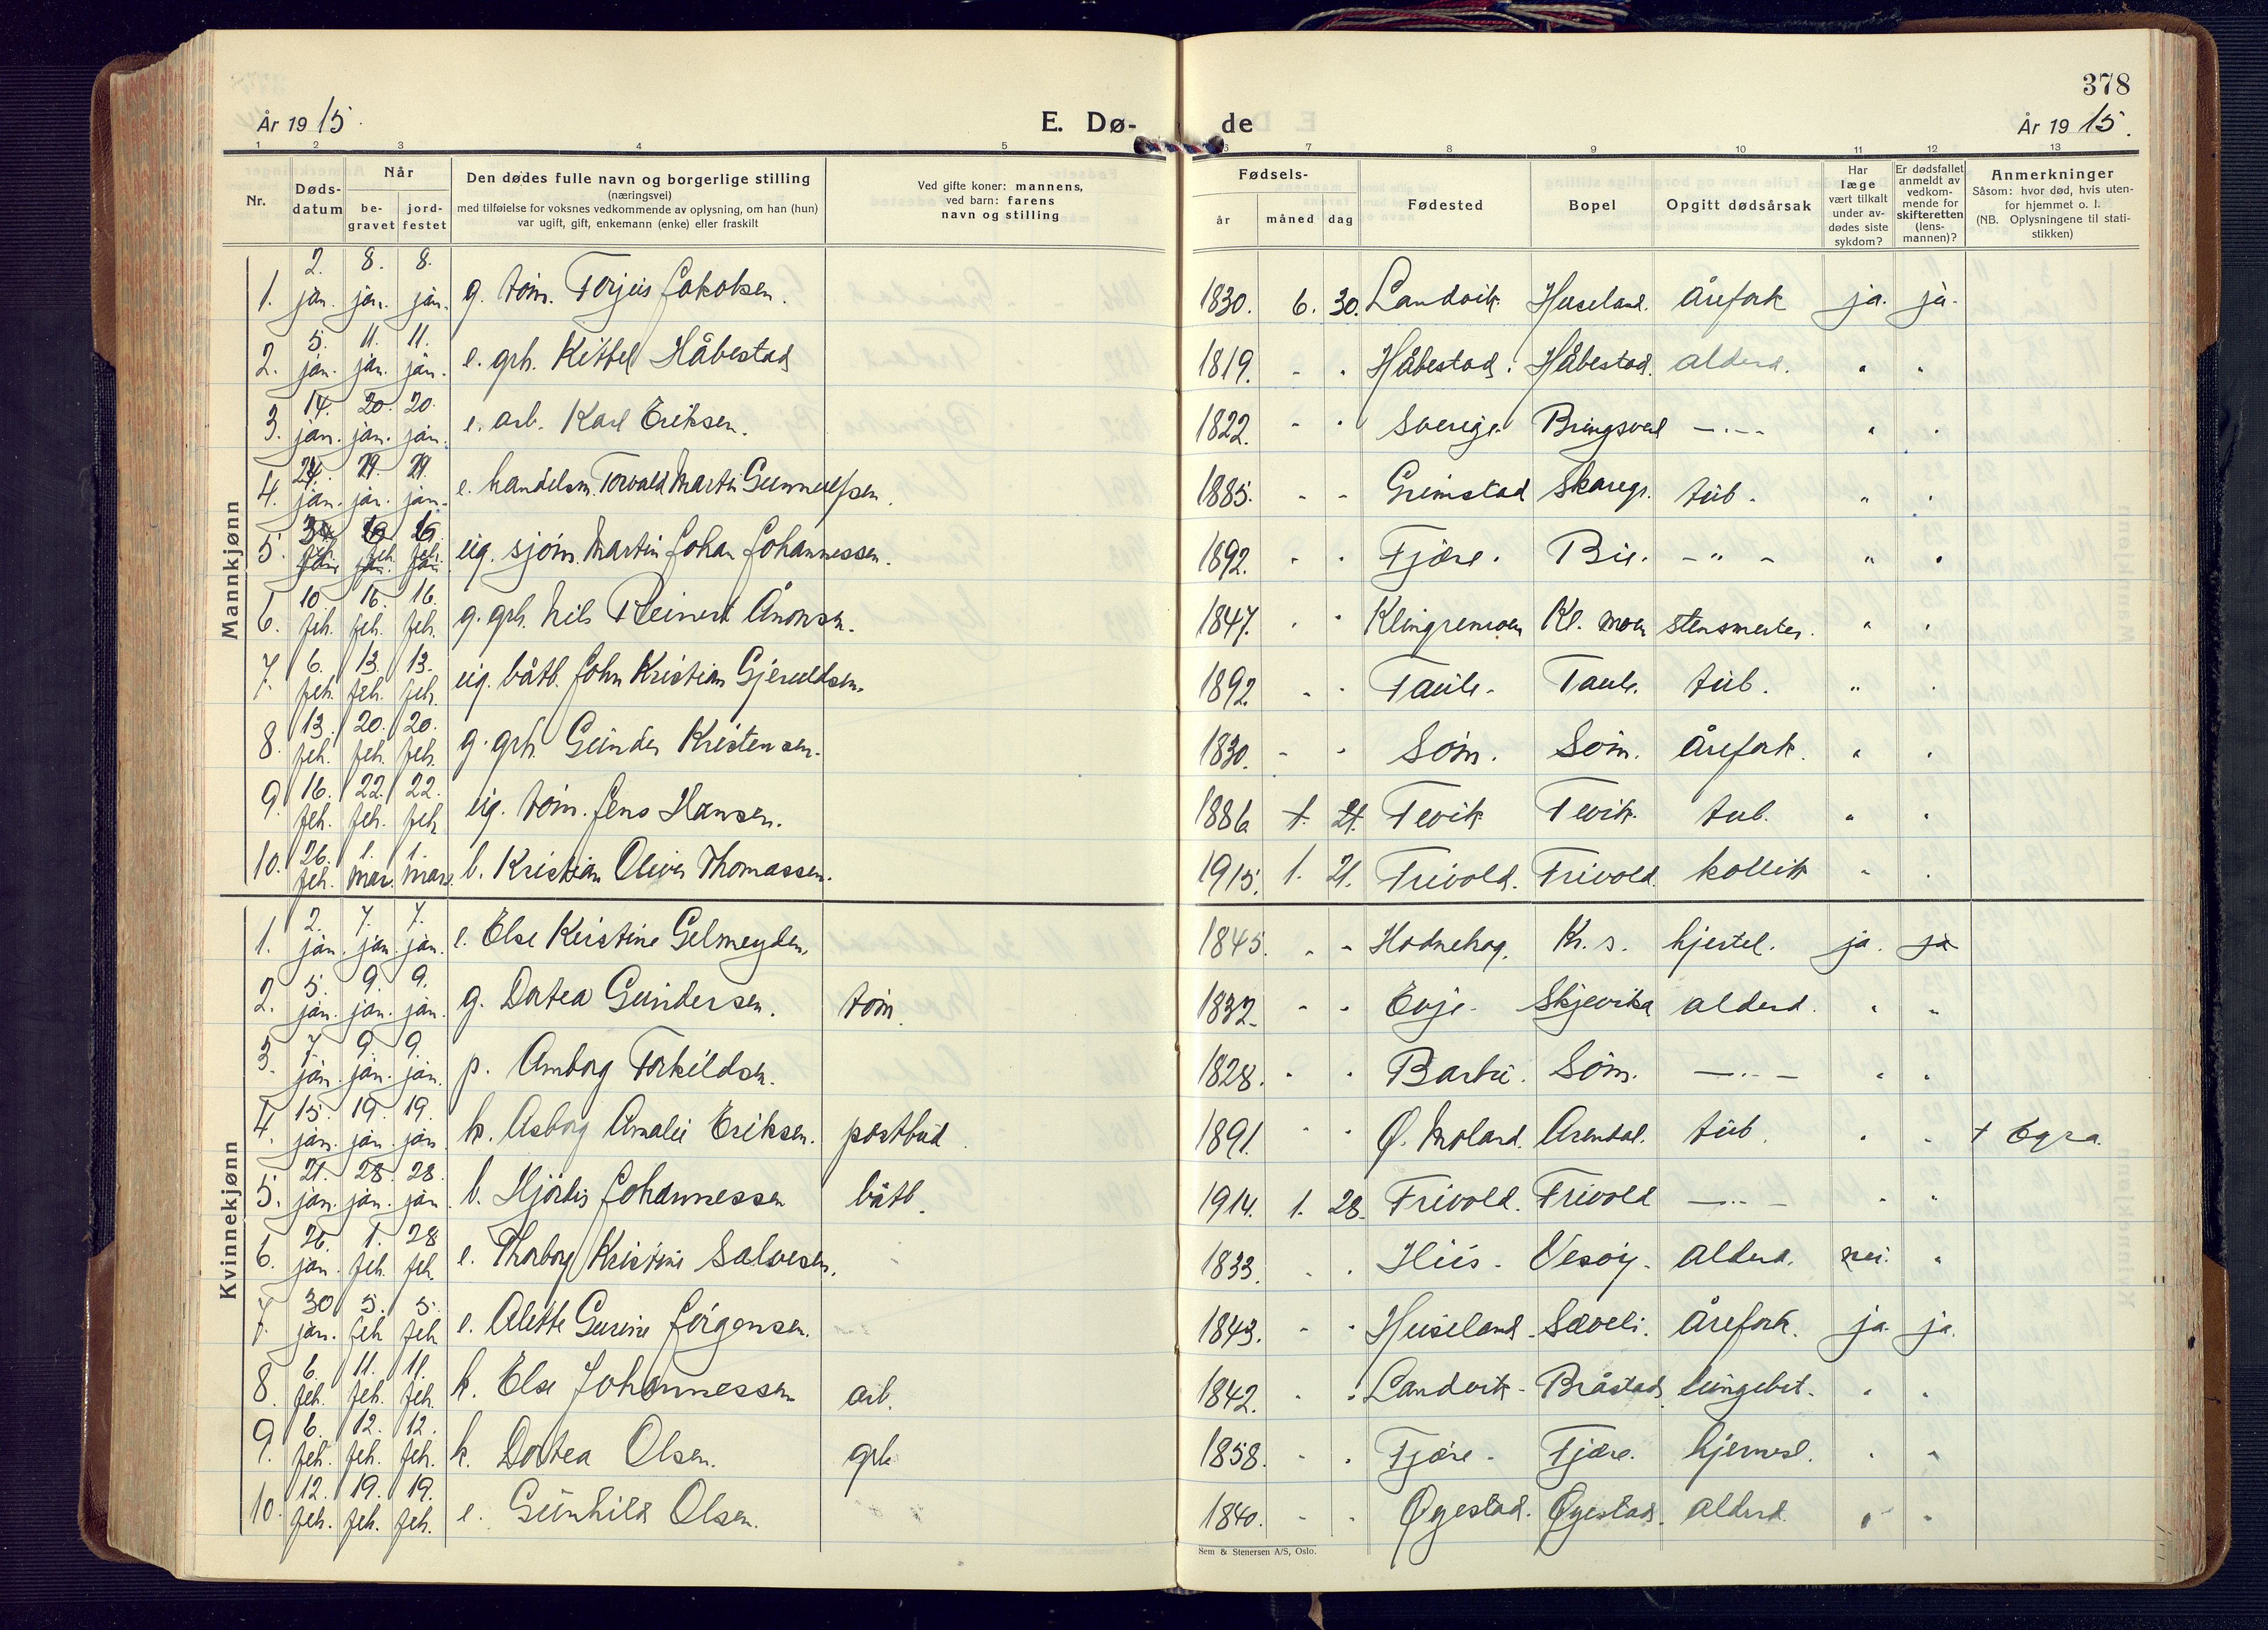 378
År 1915.
E. Dø-
de
År 1915.
1 2 3 4 5 6 7 8 9 10 11 12 13
Nr.
Døds-
datum
Når
be-
gravet
jord-
festet
Den dødes fulle navn og borgerlige stilling
(næringsvei)
med tilføielse for voksnes vedkommende av oplysning, om han (hun)
var ugift, gift, enkemann (enke) eller fraskilt
Ved gifte koner: mannens,
ved barn: farens
navn og stilling
Fødsels-
år måned dag
Fødested
Bopel
Opgitt dødsårsak
Har
læge
vært tilkalt
under av-
dødes siste
sykdom?
Er dødsfallet
anmeldt av
vedkom-
mende for
skifteretten
(lens-
mannen)?
Anmerkninger
Såsom: hvor død, hvis uten-
for hjemmet o. l.
(NB. Oplysningene til stati-
stikken)
Mannkjønn
1. 2. jan. 8. jan. 8. jan. g. tøm. Torjus Jakobsen. 1830. 6. 30. Landvik. Huseland. årefork ja. ja.
2. 5. jan. 11. jan. 11. jan. e. grb. Kittel Håbestad 1819. - - Håbestad. Håbestad. alderd. " "
3. 14. jan. 20. jan. 20. jan. e. arb. Karl Eriksen. 1822. - - Sverige. Bringsverd - " - " "
4. 24. jan. 29. jan. 29. jan. e. handelsm. Torvald Martin Gunnulfsen. 1885. - - Grimstad Skaregr. tub. " "
5. feb. 16. feb. 16. feb. ug. sjøm. Martin Johan Johannessen. 1892. - - Fjære. Bie. - " - " "
6. 10. feb. 16. feb. 16. feb. g. grb. Nils Reinert Ånonsen. 1847. - - Klingremoen Kl. moen stensmerter. " "
7. 6. feb. 13. feb. 13. feb. ug. båtb. John Kristian Gjeruldsen. 1892. - - Taule. Taule. tub. " "
8. 13. feb. 20. feb. 20. feb. g. grb. Gunder Kristensen. 1830. - - Søm. Søm. årefork. " "
9. 16. feb. 22. feb. 22. feb. ug. tøm. Jens Hansen. 1886 1. 21. Tevik Tevik. tub. " "
10. 26. feb. 1. mar. 1. mars. b. Kristian Oliver Thomassen. 1915. 1. 21. Frivold. Frivold. kolik " "
Kvinnekjønn
1. 2. jan. 7. jan. 7. jan. e. Else Kirstine Gelmeyden. 1845. - - Hodnebog. Kr. s. hjertel. ja. ja
2. 5. jan. 9. jan. 9. jan. g. Dortea Gundersen. tøm. 1832. - - Evje. Skjevika alderd. " "
3. 7. jan. 9. jan. 9. jan. p. Amborg Torkildsen. 1828. - - Barbu. Søm. - " - " "
4. 15. jan. 19. jan. 19. jan. k. Asborg Amalie Eriksen. postbud. 1891. - - Ø. Moland. Arendal. tub. " " † Egra.
5. 21. jan. 28. jan. 28. jan. b. Hjørdis Johannessen båtb. 1914. 1. 28. Frivold. Frivold - " - " "
6. 26. jan. 1. feb. 28 feb. e. Thorborg Kristine Salvesen. 1833. - - Hiis. Vesøy. alderd. nei. "
7. 30 jan. 5. feb 5. feb e. Alette Gurine Jørgensen. 1843. - - Huseland. Sæveli. årefork. ja. ja.
8. 6. feb. 11. feb. 11. feb. k. Else Johannessen arb. 1842. - - Landvik. Bråstad. lungebet. " "
9. 6. feb. 12. feb. 12. feb. k. Dortea Olsen. grb. 1858. - - Fjære. Fjære. hjernesl. " "
10. 12. feb. 19. feb. 19. feb. e. Gunhild Olsen. 1840. - - Øyestad. Øyestad. alderd. " "
Sem & Stenersen A/S, Oslo.